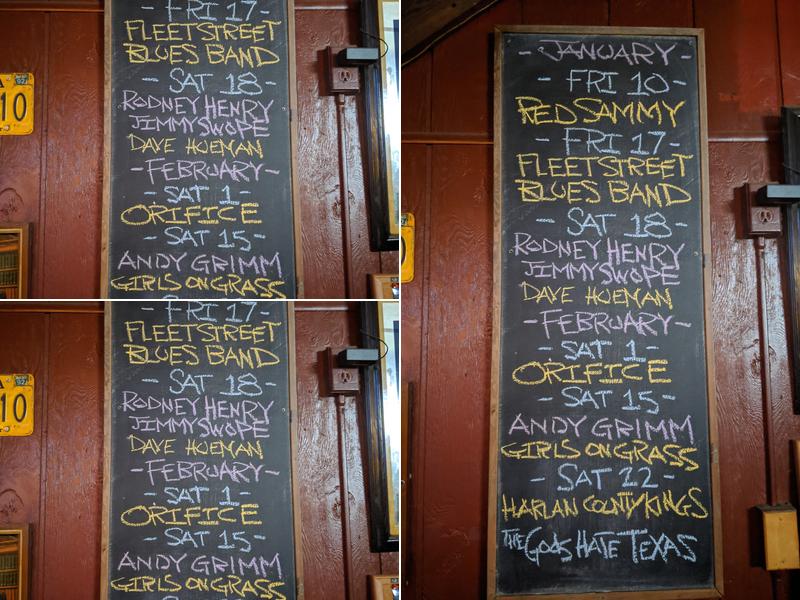 - FRI 17 -
FLEETSTREET
BLUES BAND
- SAT 18 -
RODNEY HENRY
JIMMY SWOPE
DAVE HUEMAN
- FEBRUARY -
- SAT 1 -
ORIFICE
- SAT 15 -
ANDY GRIMM
GIRLS ON GRASS
10
- FRI 17 -
FLEETSTREET
BLUES BAND
- SAT 18 -
RODNEY HENRY
JIMMY SWOPE
DAVE HUEMAN
- FEBRUARY -
- SAT 1 -
ORIFICE
- SAT 15 -
ANDY GRIMM
GIRLS ON GRASS
10
- JANUARY -
- FRI 10 -
RED SAMMY
- FRI 17 -
FLEETSTREET
BLUES BAND
- SAT 18 -
RODNEY HENRY
JIMMY SWOPE
DAVE HUEMAN
- FEBRUARY -
- SAT 1 -
ORIFICE
- SAT 15 -
ANDY GRIMM
GIRLS ON GRASS
- SAT 22 -
HARLAN COUNTY KINGS
THE GODS HATE TEXAS